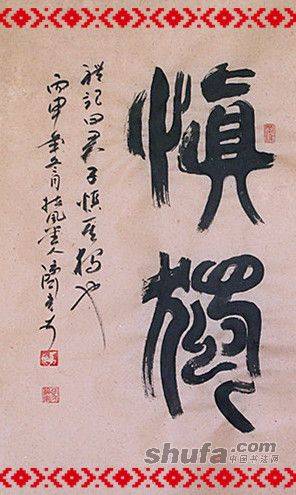 慎獨
禮記曰君子慎其獨也
丙申冬月扶風
shufa.com
中国书法网